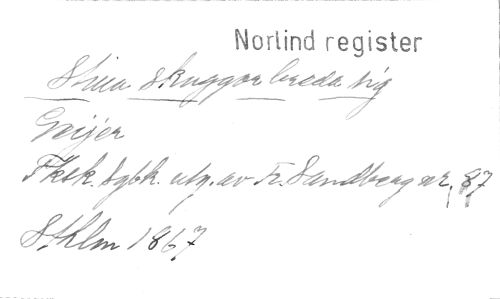 Norlind register
Stilla skuggor breda sig
Geijer
Fksk. Sgbk. utg. av Fr. Sandberg nr. 87
Sthlm 1867